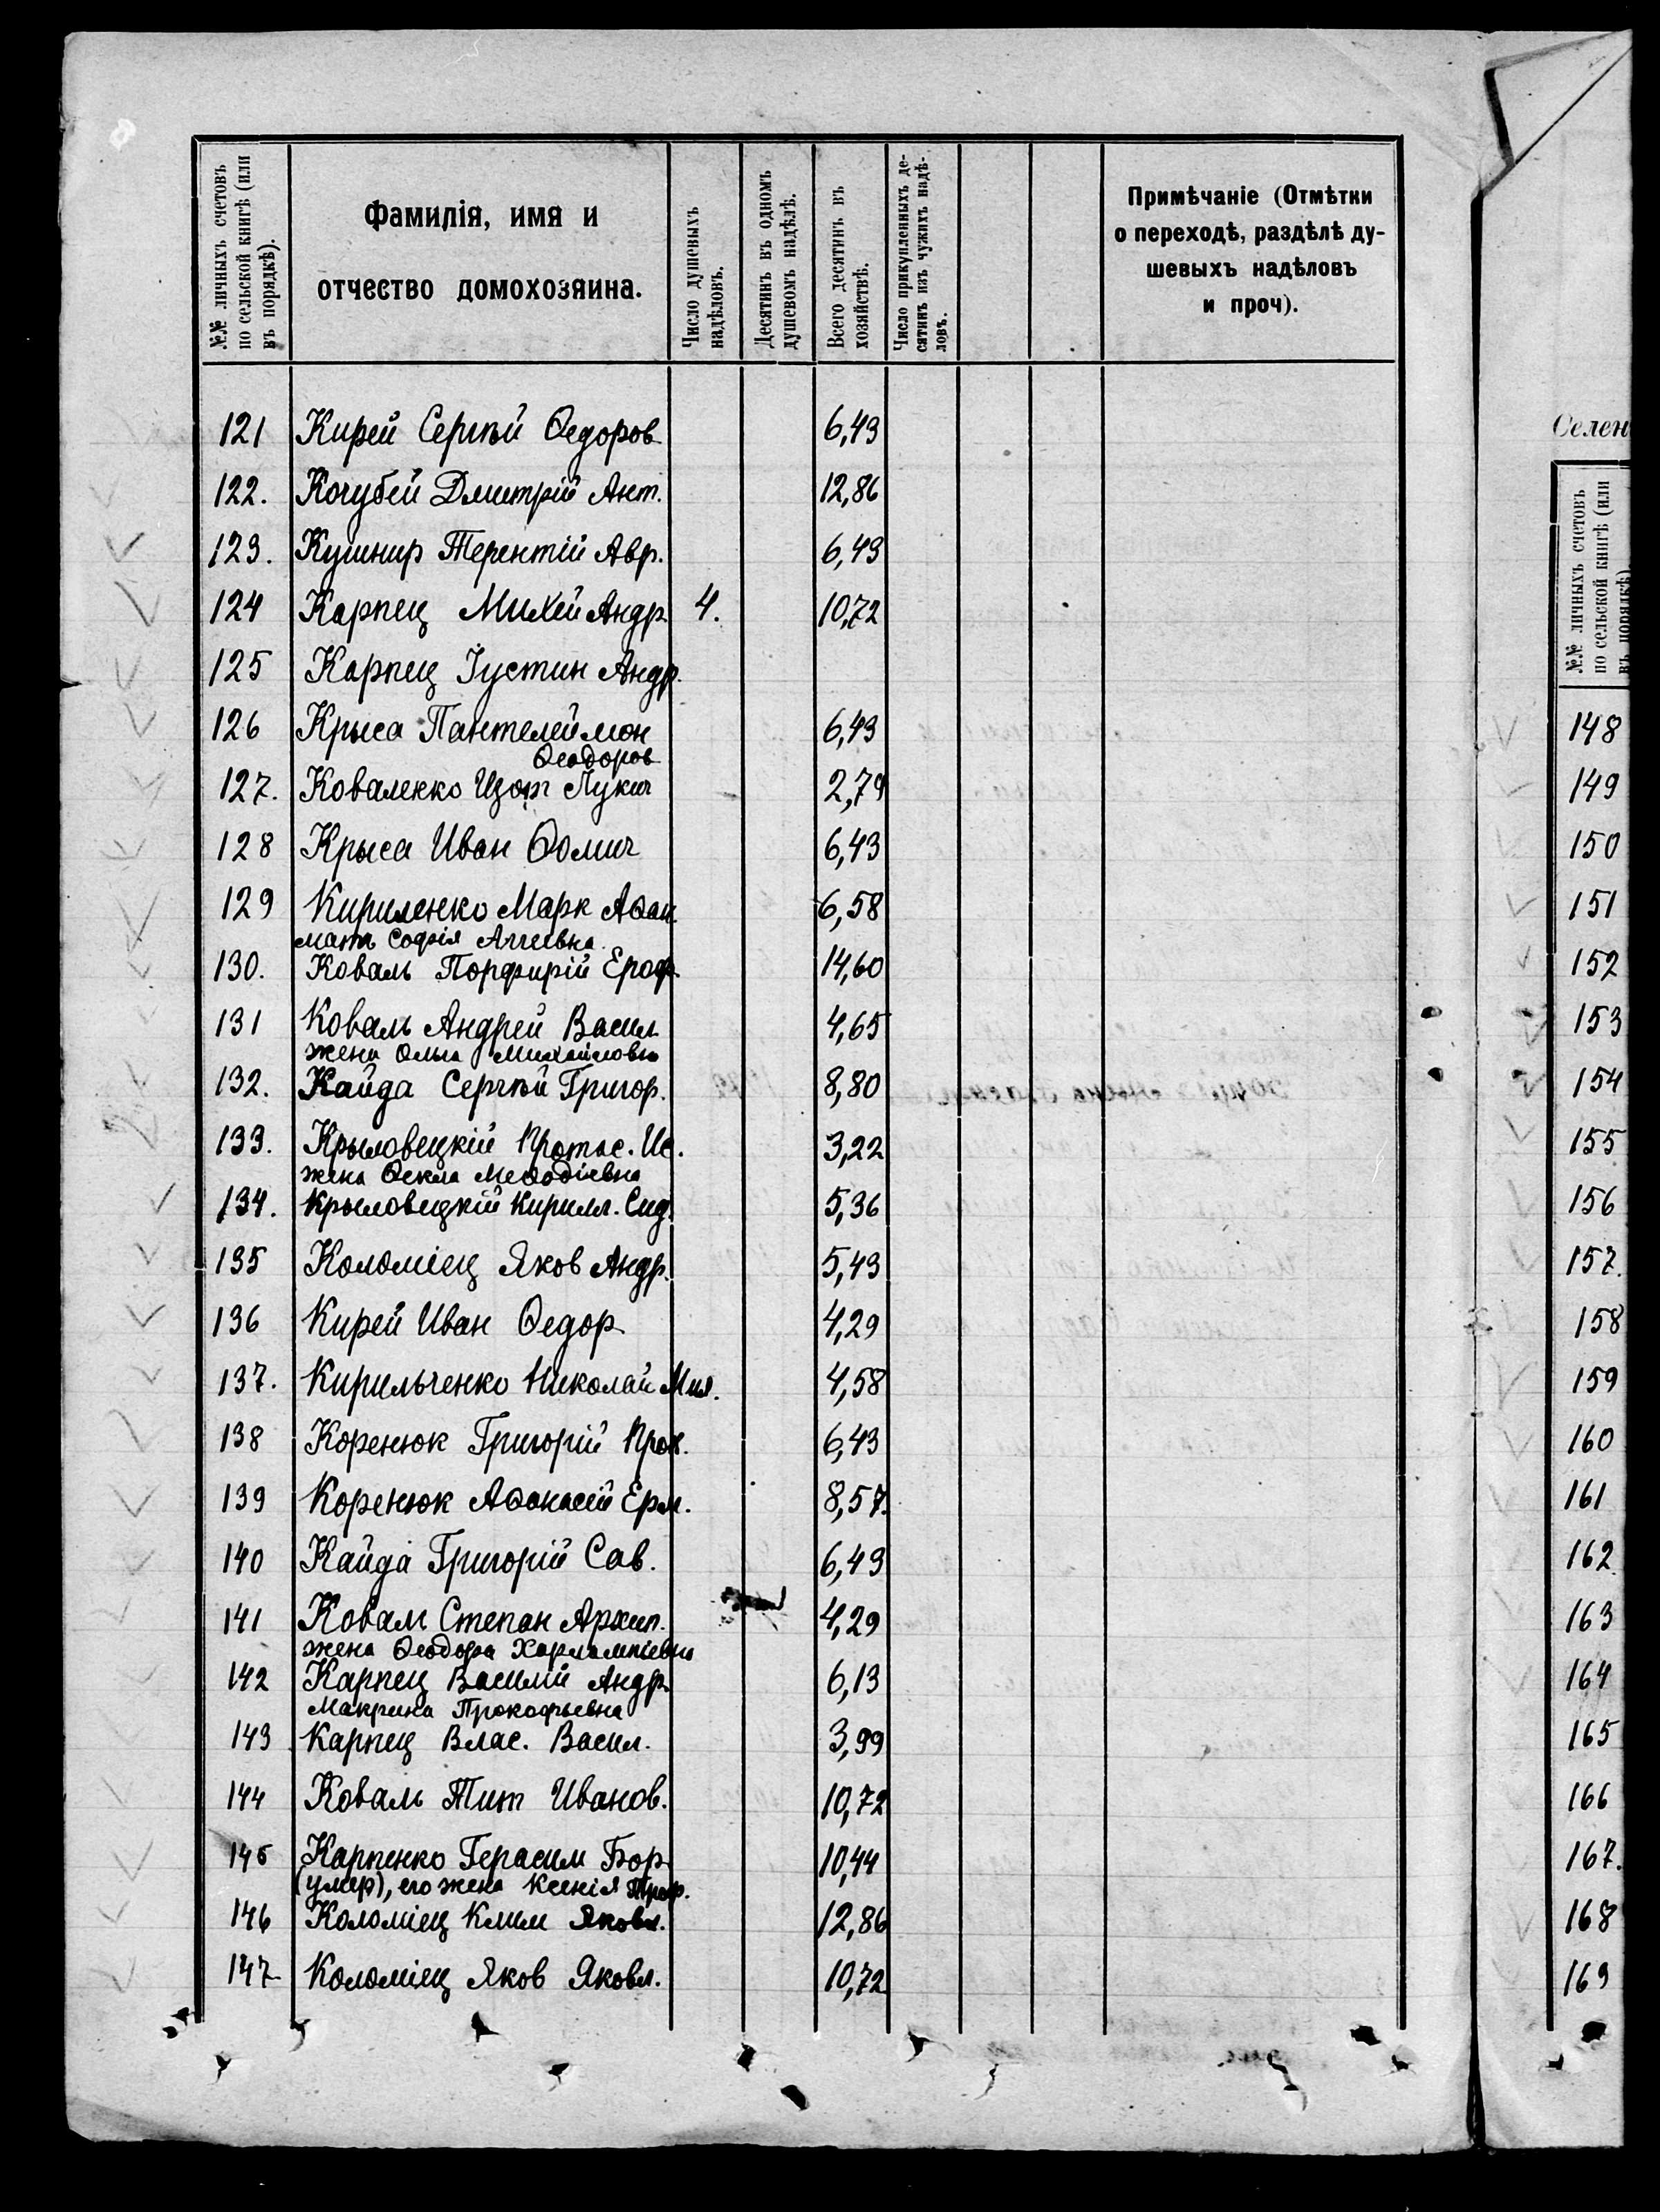 №№ личныхъ счетовъ
по сельской книгѣ (или
въ порядкѣ).
Фамилія, имя и
отчество домохозяина.
Число душевыхъ
надѣловъ.
Десятинъ въ одномъ
душевомъ надѣлѣ.
Всего десятинъ въ
хозяйствѣ.
Число прикупленныхъ де-
сятинъ изъ чужихъ надѣ-
ловъ.
Примѣчаніе (Отмѣтки
о переходѣ, раздѣлѣ ду-
шевыхъ надѣловъ
и проч).
121 Кирей Сергѣй Ѳедоров 6,43
122. Кочубей Дмитрій Ант. 12,86
123. Кушнир Терентій Авр. 6,43
124 Карпец Михей Андр. 4. 10,72
125 Карпец Іустин Андр.
126 Крыса Пантелеймон 6,43
Ѳеодоров
127. Коваленко Изот Лукич 2,79
128 Крыса Иван Ѳомич 6,43
129 Кириленко Марк Аѳан. 6,58
мать Софія Аггеевна
130. Коваль Порфирій Ероф. 14,60
131 Коваль Андрей Васил. 4,65
жена Ольга Михайловна
132. Кайда Сергѣй Григор. 8,80
133. Крыловецкій Протас. Ис. 3,22
жена Ѳекла Меѳодіевна
134. Крыловецкій Кирилл. Сид. 5,36
135 Коломіец Яков Андр. 5,43
136 Кирей Иван Ѳедор. 4,29
137. Кирильченко Николай Мих. 4,58
138 Коренюк Григорій Прок. 6,43
139 Коренюк Аѳанасій Ерм. 8,57.
140 Кайда Григорій Сав. 6,43
141 Коваль Степан Архип. 4,29
жена Ѳеодора Харлампіевна
142 Карпец Василій Андр. 6,13
Макрина Прокофьевна
143 Карпец Влас. Васил. 3,99
144 Коваль Тит Иванов. 10,72
145 Карпенко Герасим Бор. 10,44
(умер), его жена Ксенія Троф.
146 Коломіец Клим Яковл. 12,86
147 Коломіец Яков Яковл. 10,72
Селен
№№ личныхъ счетовъ
по сельской книгѣ (или
въ порядкѣ)
148
149
150
151
152
153
154
155
156
157.
158
159
160
161
162
163
164
165
166
167.
168
169